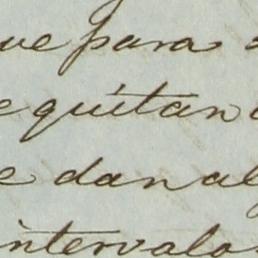 ue para
e quitan
e dan al
intervalos